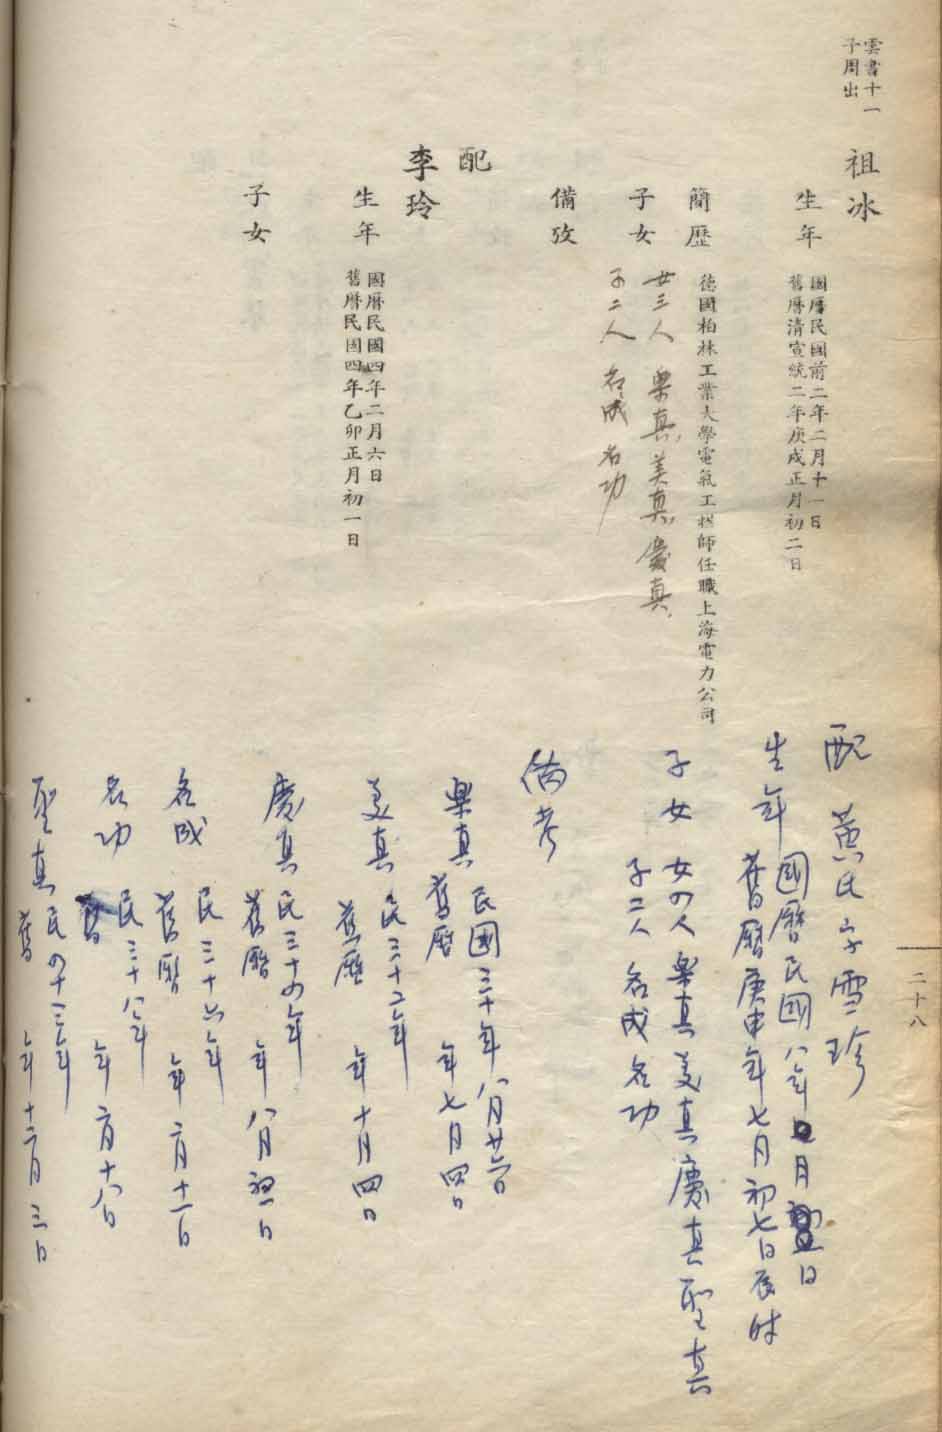 雲書十一
子周出
祖冰
生年
國曆民國前二年二月十一日
舊曆清宣統二年庚戌正月初二日
簡歷
德國柏林工業大學電氣工程師任職上海電力公司
子女
女三人 樂真 美真 慶真
子二人 名成 名功
備攷
配
李玲
生年
國曆民國四年二月六日
舊曆民國四年乙卯正月初一日
子女
配 黃氏 字雪珍
生年
國曆民國八年 月 日
舊曆庚申年七月初七日辰時
子女
女四人 樂真 美真 慶真 聖真
子二人 名成 名功
備考
樂真
民國三十年八月廿六日
舊曆 年七月四日
美真
民三十二年
舊曆 年十月四日
慶真
民三十四年
舊曆 年八月初一日
名成
民三十六年
舊曆 年二月十一日
名功
民三十八年
舊 年二月十八日
聖真
民四十三年
舊 年十二月三日
二十八